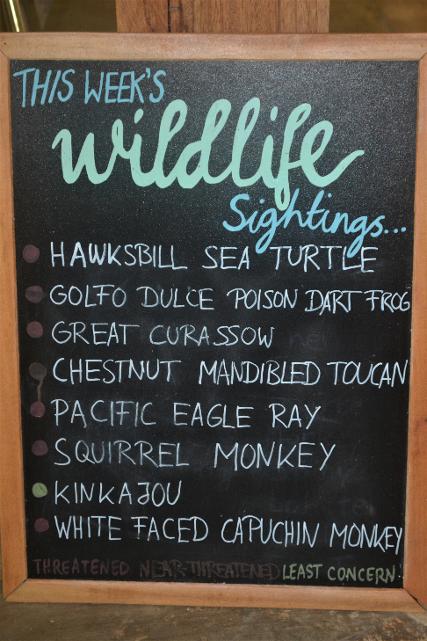 THIS WEEK'S
wildlife
Sightings...
HAWKSBILL SEA TURTLE
GOLFO DULCE POISON DART FROG
GREAT CURASSOW
CHESTNUT MANDIBLED TOUCAN
PACIFIC EAGLE RAY
SQUIRREL MONKEY
KINKAJOU
WHITE FACED CAPUCHIN MONKEY
THREATENED NEAR-THREATENED LEAST CONCERN